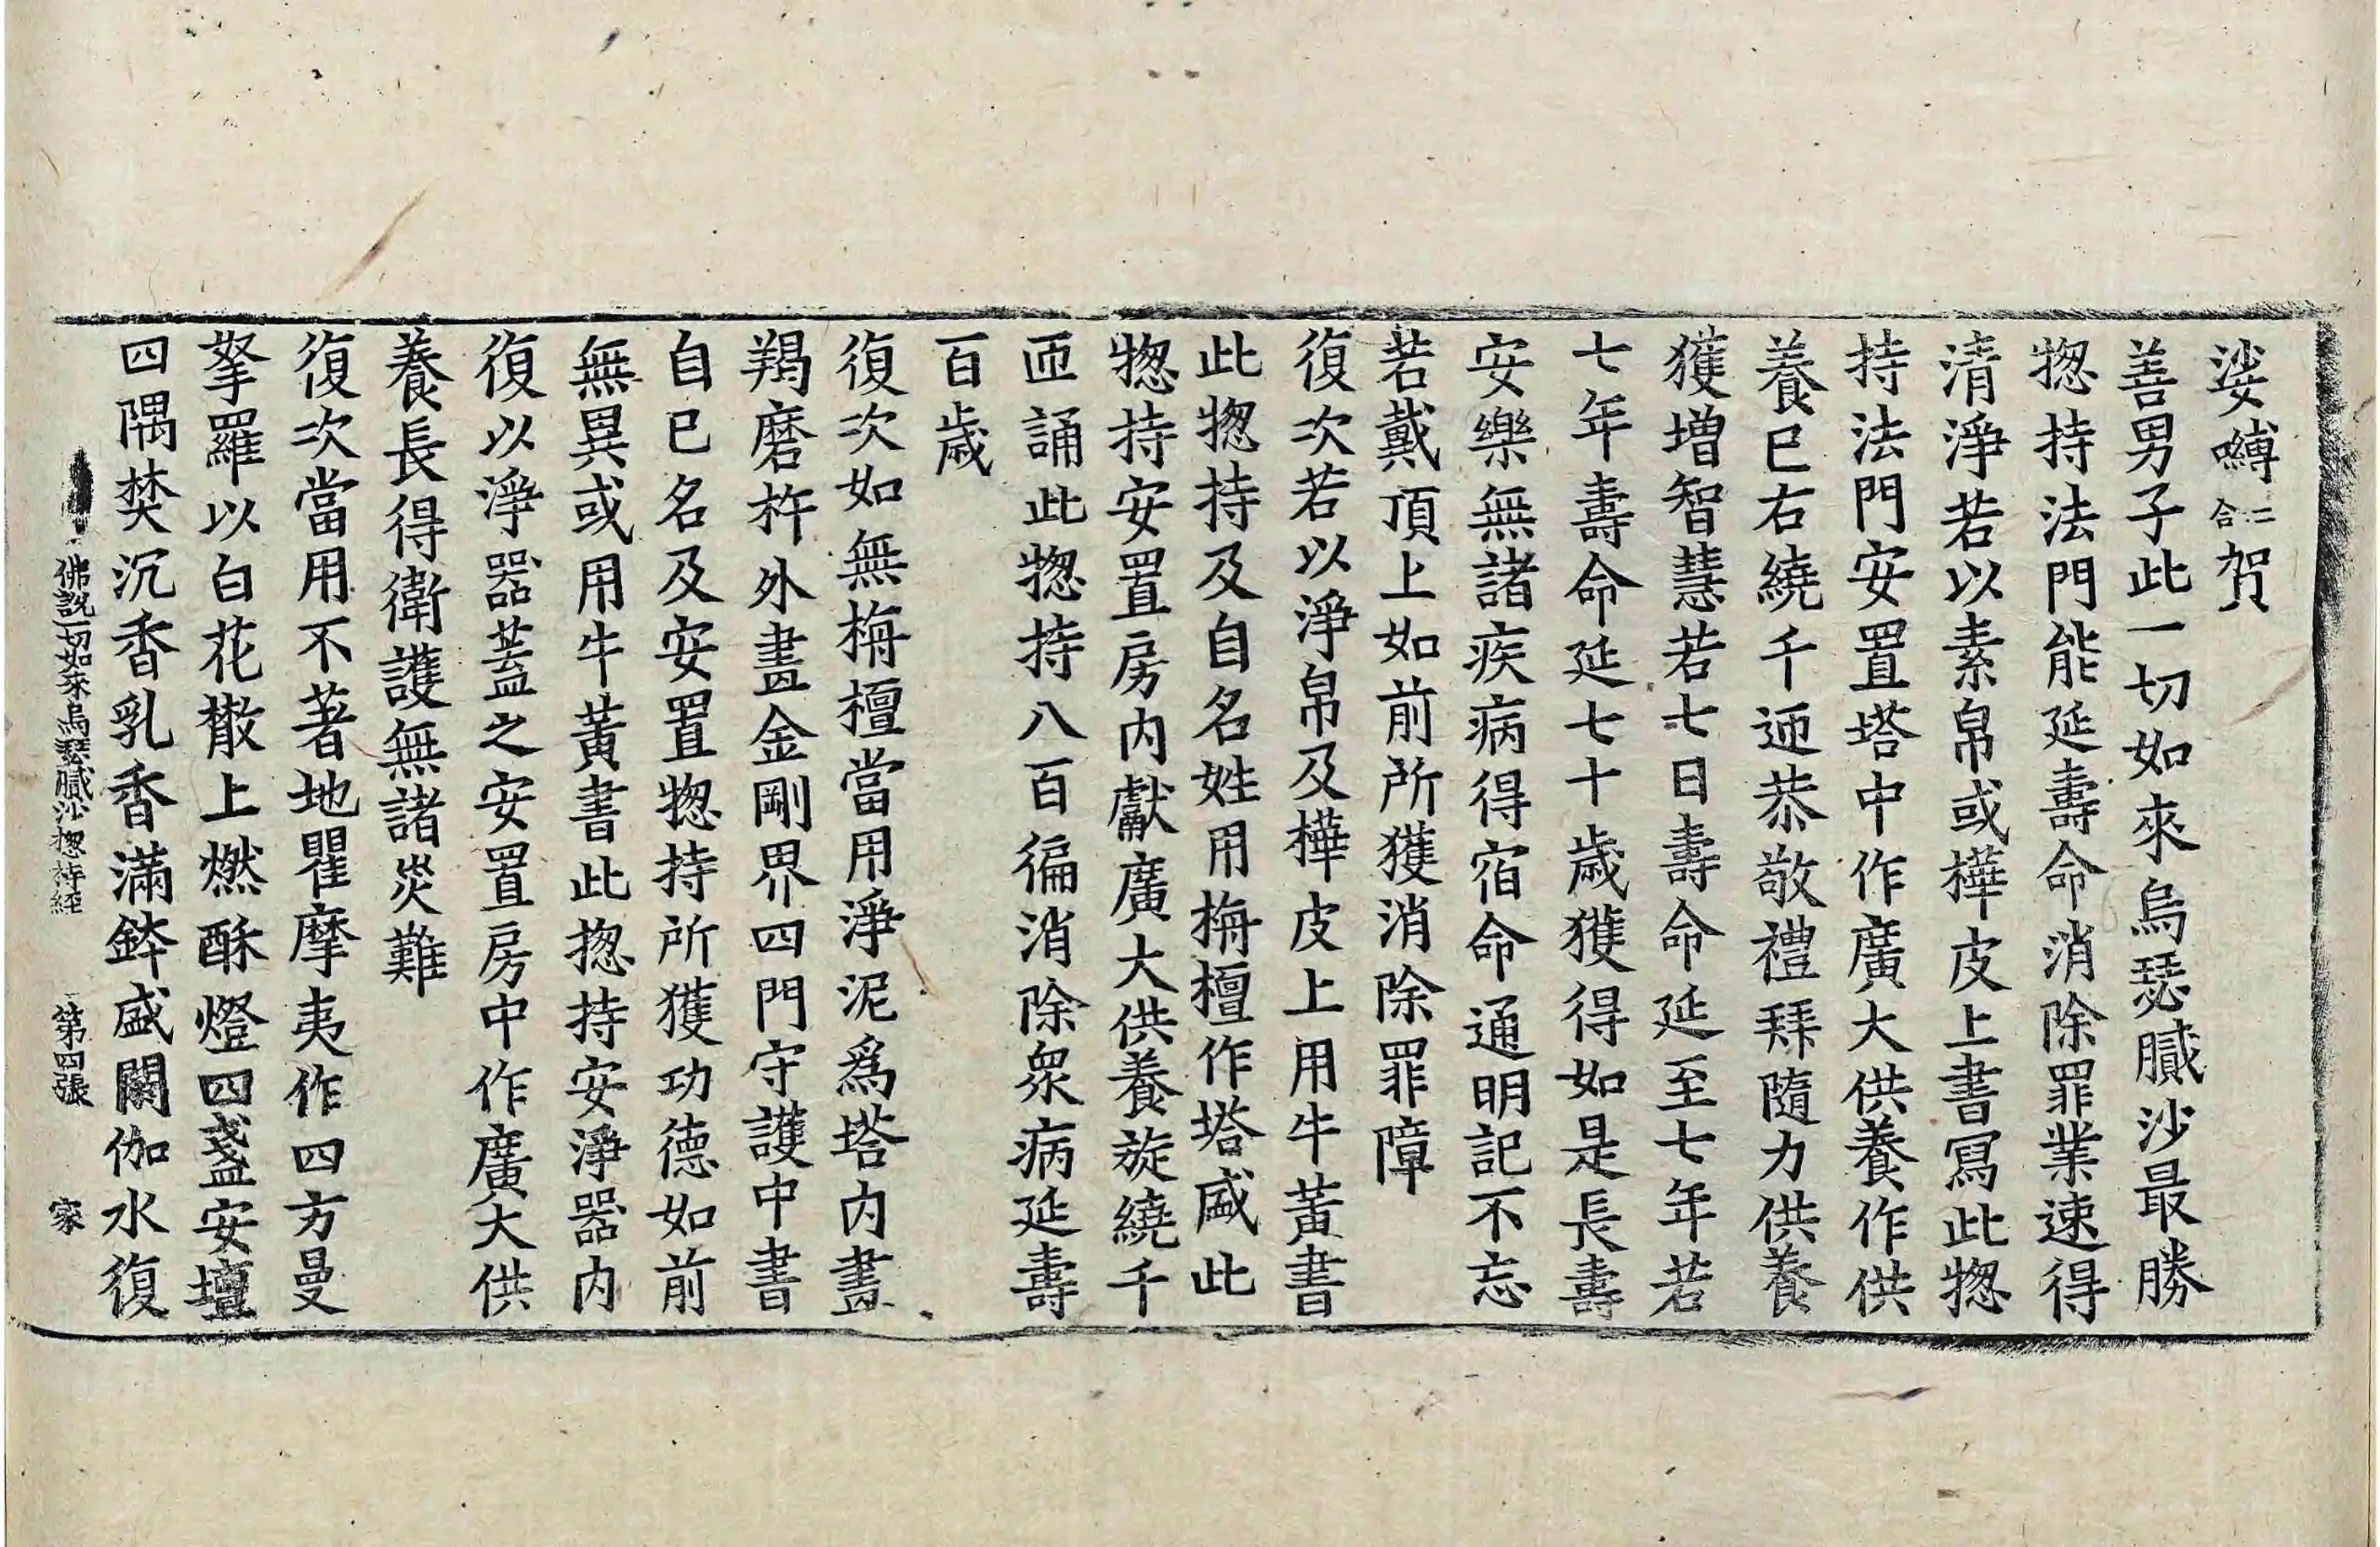 娑嚩二合賀
善男子此一切如來烏瑟膩沙最勝
揔持法門能延壽命消除罪業速得
清淨若以素帛或樺皮上書寫此揔
持法門安置塔中作廣大供養作供
養已右繞千迊恭敬禮拜隨力供養
獲增智慧若七日壽命延至七年若
七年壽命延七十歲獲得如是長壽
安樂無諸疾病得宿命通明記不忘
若戴頂上如前所獲消除罪障
復次若以淨帛及樺皮上用牛黃書
此揔持及自名姓用栴檀作塔盛此
揔持安置房内獻廣大供養旋繞千
迊誦此揔持八百徧消除衆病延壽
百歲
復次如無栴檀當用淨泥爲塔内畫
羯磨杵外畫金剛界四門守護中書
自已名及安置揔持所獲功德如前
無異或用牛黃書此揔持安淨器内
復以淨器蓋之安置房中作廣大供
養長得衛護無諸災難
復次當用不著地瞿摩夷作四方曼
拏羅以白花散上燃酥燈四盞安壇
四隅焚沉香乳香滿鉢盛閼伽水復
佛說一切如來烏瑟膩沙揔持經 第四張 家